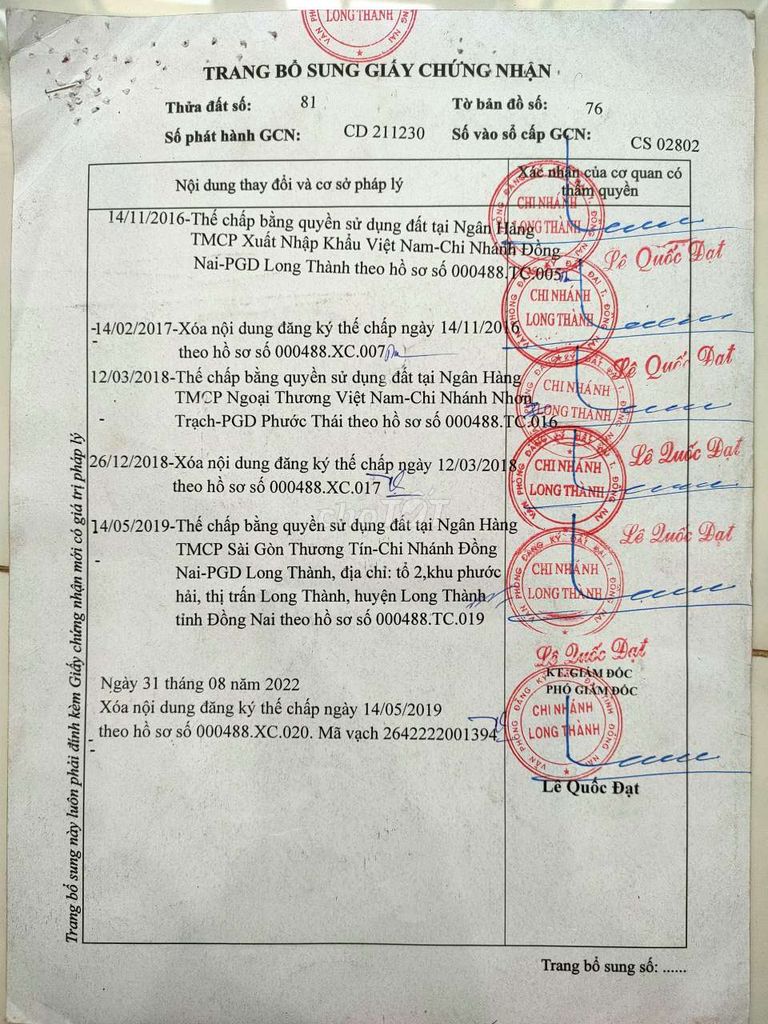 LONG THÀNH
TRANG BỔ SUNG GIẤY CHỨNG NHẬN
Thửa đất số: 81 Tờ bản đồ số: 76
Số phát hành GCN: CD 211230 Số vào sổ cấp GCN: CS 02802
Nội dung thay đổi và cơ sở pháp lý
Xác nhận của cơ quan có
thẩm quyền
14/11/2016-Thế chấp bằng quyền sử dụng đất tại Ngân Hàng
TMCP Xuất Nhập Khẩu Việt Nam-Chi Nhánh Đồng
Nai-PGD Long Thành theo hồ sơ số 000488.TC.005
CHI NHÁNH
LONG THÀNH
Lê Quốc Đạt
-14/02/2017-Xóa nội dung đăng ký thế chấp ngày 14/11/2016
theo hồ sơ số 000488.XC.007
CHI NHÁNH
LONG THÀNH
Lê Quốc Đạt
12/03/2018-Thế chấp bằng quyền sử dụng đất tại Ngân Hàng
TMCP Ngoại Thương Việt Nam-Chi Nhánh Nhơn
Trạch-PGD Phước Thái theo hồ sơ số 000488.TC.016
CHI NHÁNH
LONG THÀNH
Lê Quốc Đạt
26/12/2018-Xóa nội dung đăng ký thế chấp ngày 12/03/2018
theo hồ sơ số 000488.XC.017
CHI NHÁNH
LONG THÀNH
Lê Quốc Đạt
14/05/2019-Thế chấp bằng quyền sử dụng đất tại Ngân Hàng
TMCP Sài Gòn Thương Tín-Chi Nhánh Đồng
Nai-PGD Long Thành, địa chỉ: tổ 2,khu phước
hải, thị trấn Long Thành, huyện Long Thành
tỉnh Đồng Nai theo hồ sơ số 000488.TC.019
CHI NHÁNH
LONG THÀNH
Lê Quốc Đạt
Ngày 31 tháng 08 năm 2022
Xóa nội dung đăng ký thế chấp ngày 14/05/2019
theo hồ sơ số 000488.XC.020. Mã vạch 2642222001394
KT.GIÁM ĐỐC
PHÓ GIÁM ĐỐC
CHI NHÁNH
LONG THÀNH
Lê Quốc Đạt
Trang bổ sung này luôn phải đính kèm Giấy chứng nhận mới có giá trị pháp lý
Trang bổ sung số: ......